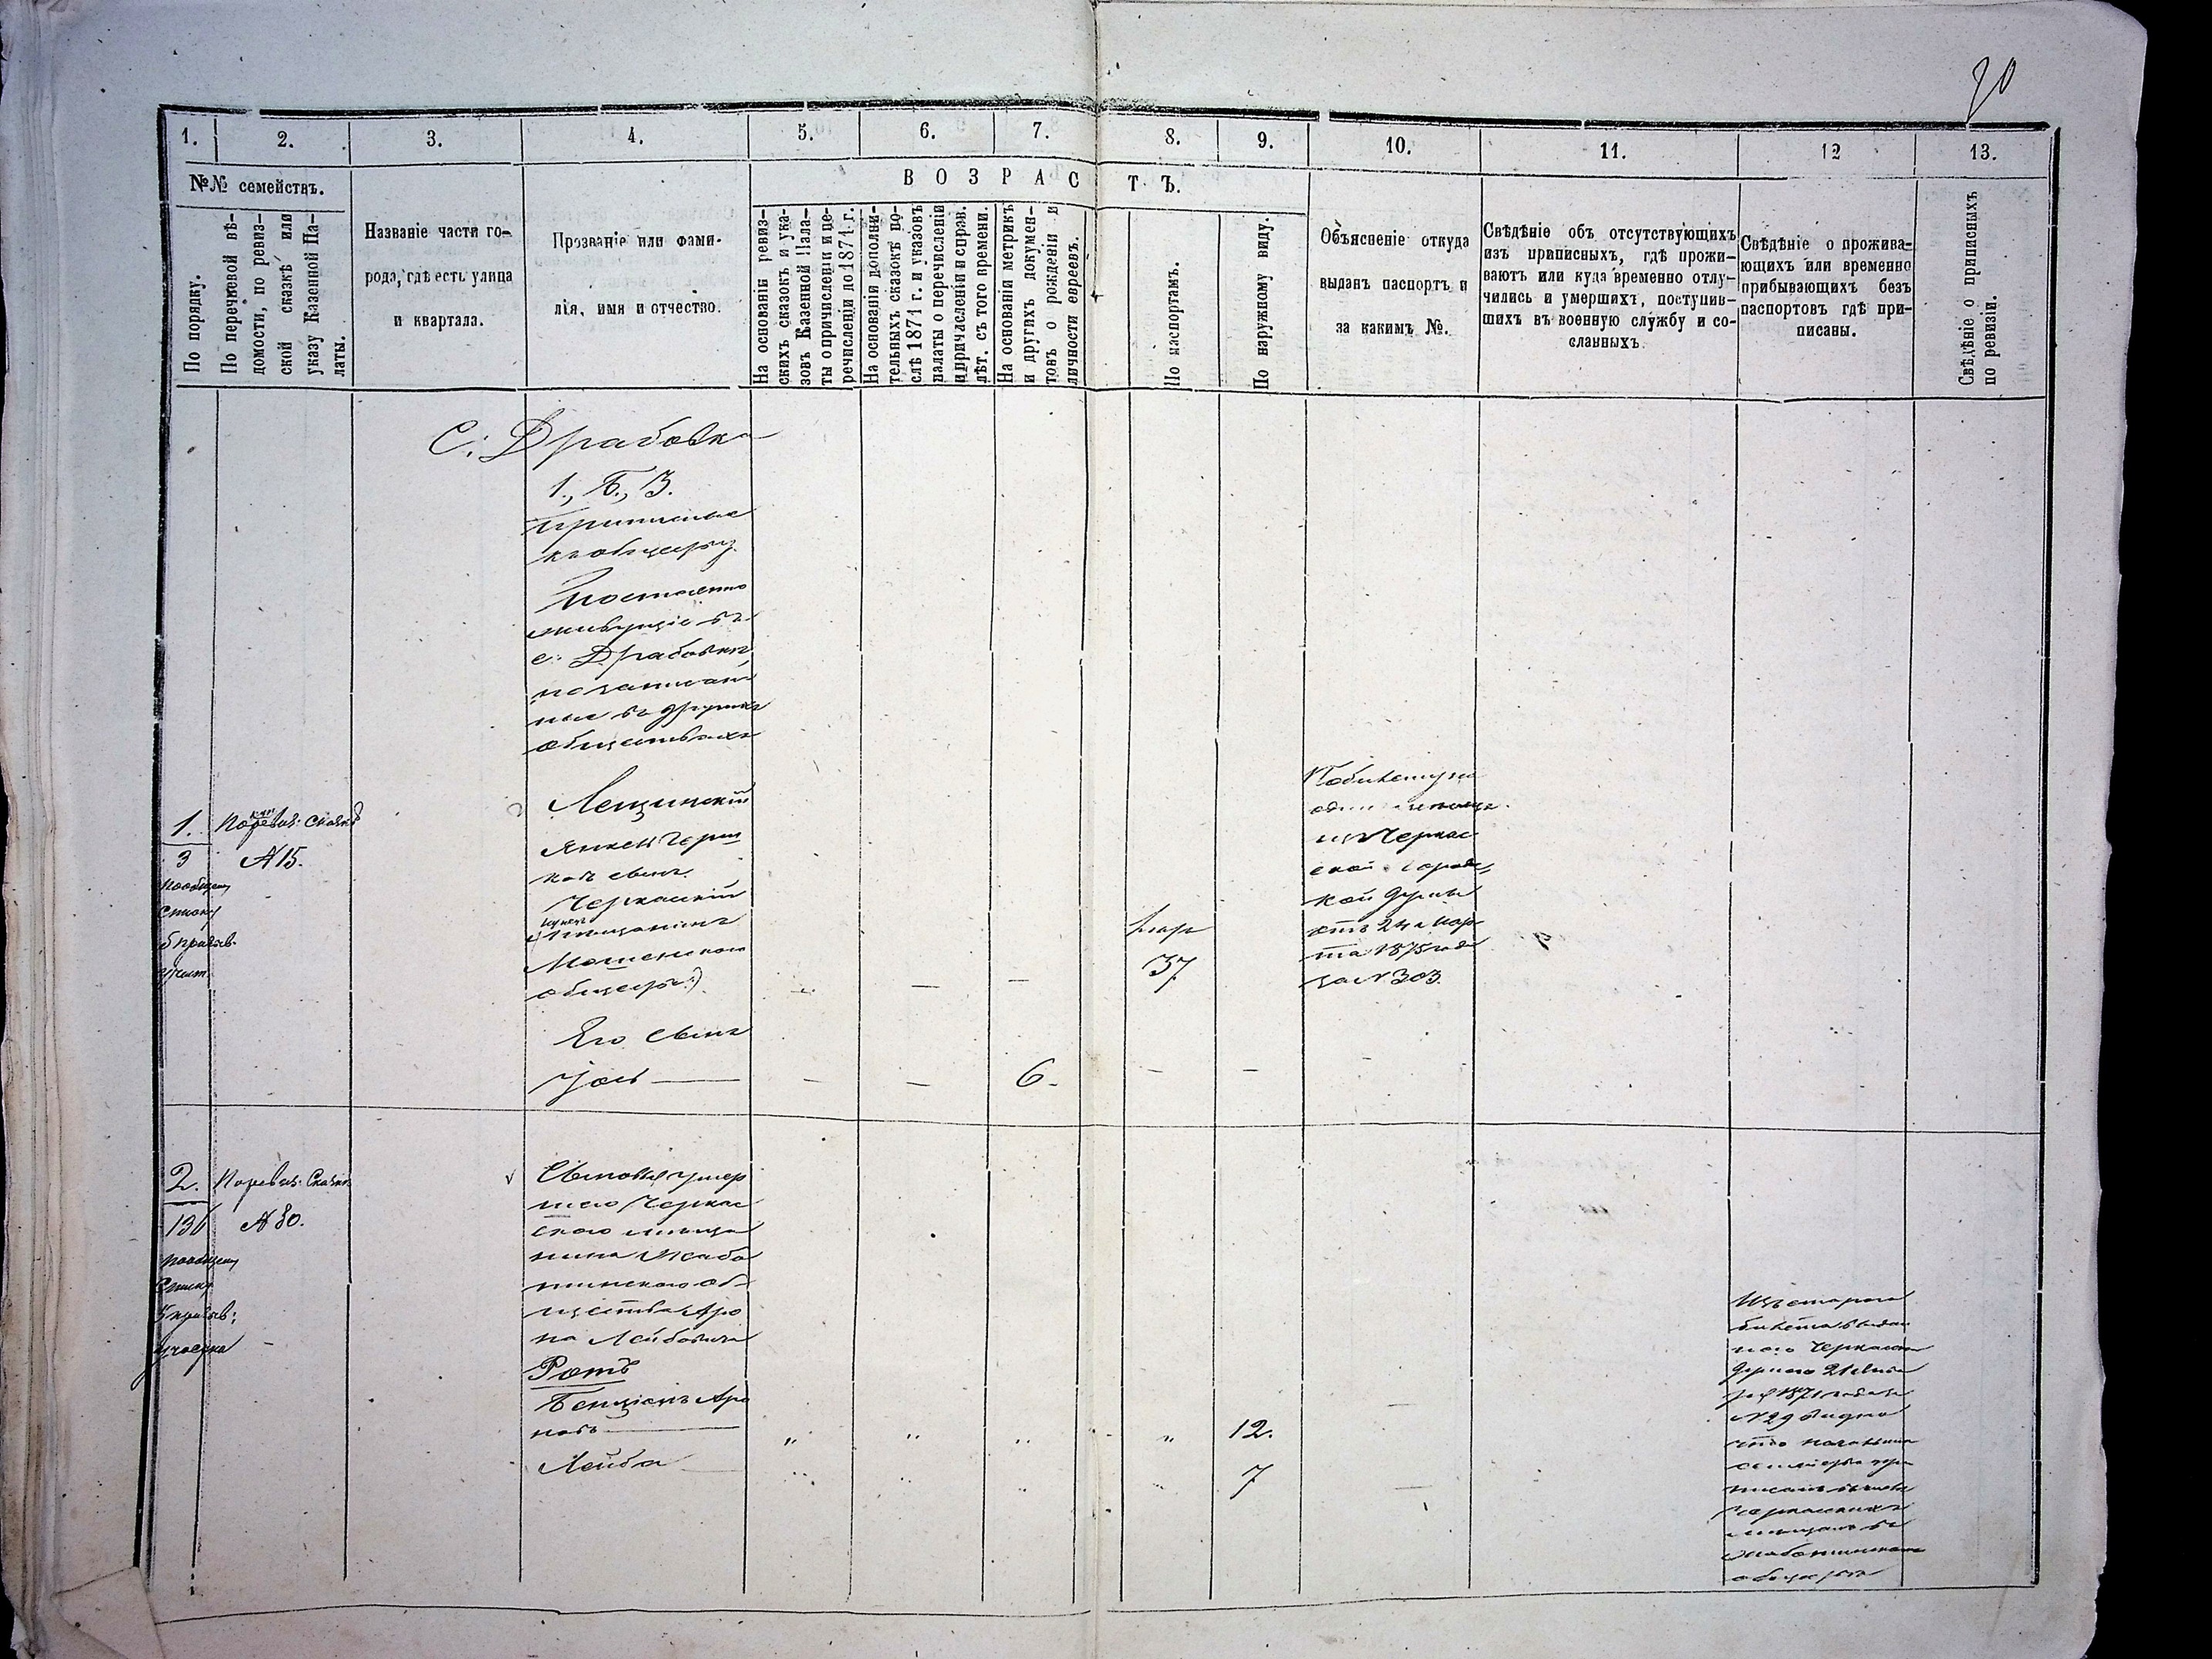 20
1.
2.
3.
4.
5.
6.
7.
8.
9.
10.
11.
12
13.
№№ семействъ.
ВОЗРАСТЪ.
По порядку.
По перечневой вѣ-
домости, по ревиз-
ской сказкѣ или
указу Казенной Па-
латы.
Названіе части го-
рода, гдѣ есть улица
и квартала.
Прозваніе или фами-
лія, имя и отчество.
На основаніи ревиз-
скихъ сказокъ и ука-
зовъ Казенной Пала-
ты о причисленіи и пе-
речисленіи до 1871 г.
На основаніи дополни-
тельныхъ сказокъ по-
слѣ 1871 г. и указовъ
палаты о перечисленіи
и причисленіи и справ.
лѣт. съ того времени.
На основаніи метрикъ
и другихъ докумен-
товъ о рожденіи и
личности евреевъ.
По паспортамъ.
По наружному виду.
Объясненіе откуда
выданъ паспортъ и
за какимъ №.
Свѣдѣніе объ отсутствующихъ
изъ приписныхъ, гдѣ прожи-
ваютъ или куда временно отлу-
чились и умершихъ, поступив-
шихъ въ военную службу и со-
сланныхъ.
Свѣдѣніе о прожива-
ющихъ или временно
прибывающихъ безъ
паспортовъ гдѣ при-
писаны.
Свѣдѣніе о приписныхъ
по ревизіи.
С: Драбовка
1., Б., 3.
къ общеcтву
Постоянно
живущіе въ
с. Драбовкѣ,
но записан-
ные въ другихъ
обществахъ
1.
3
По ревиз. сказкѣ
№ 15.
по общему
списку
5 призыв.
участ.
Лещинскій
Янкель Герш
ковъ сынъ
Черкасскій
мѣщанинъ
Мошенского
общества)
37
По билету
изъ Черкас
ской городс
кой Думы
отъ 24 мар
та 1875 года
за № 303.
Его сынъ
Іось
6
2.
136
По ревиз. Сказкѣ
№ 80.
по общему
Списку
5 призыв:
участка
Сыновья умер
шаго Черкас
скаго мѣща
нина Жабо
тинскаго об-
щества Аро
на Лейбовича
Ротъ
Бенціонъ Аро
новъ
12.
Лейба
7
Изъ стараго
билета выдан
наго Черкасскою
Думою 21 Янва
ря 1871 года за
№ 29 видно
что
Черкасскихъ
мѣщанъ въ
Жаботинскомъ
обществѣ